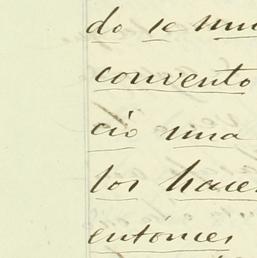 do se
convento
cio una
los hace
entónces